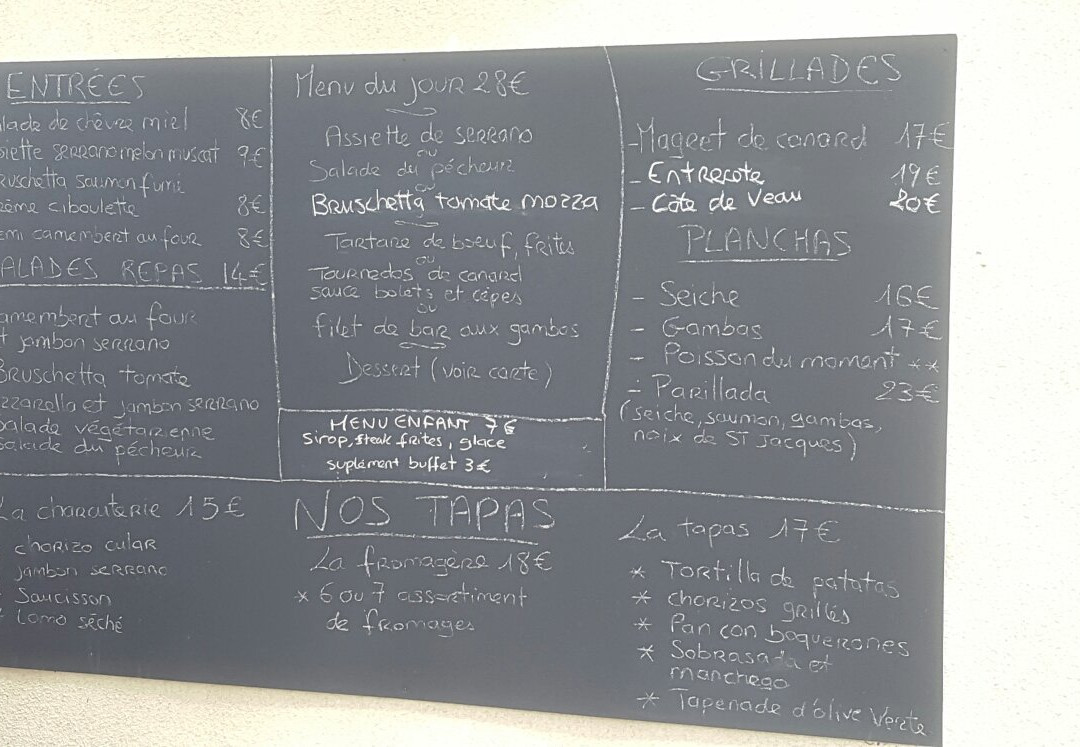 ENTRÉES
lade de chèvre miel 8€
siette serrano melon muscat 9€
ruschetta saumon fumé
rème ciboulette 8€
emi camembert au four 8€
ALADES REPAS 14€
amembert au four
t jambon serrano
Bruschetta tomate
zzarella et jambon serrano
Salade végétarienne
Salade du pécheur
Menu du jour 28€
Assiette de serrano
ou
Salade du pécheur
ou
Bruschetta tomate mozza
Tartare de boeuf, frites
ou
Tournedos de canard
sauce bolets et cèpes
ou
filet de bar aux gambas
Dessert (voir carte)
MENU ENFANT 7€
Sirop, steak frites, glace
suplément buffet 3€
GRILLADES
- Magret de canard 17€
- Entrecote 19€
- Côte de Veau 20€
PLANCHAS
- Seiche 16€
- Gambas 17€
- Poisson du moment **
- Parillada 23€
(seiche, saumon, gambas,
noix de ST Jacques)
NOS TAPAS
La charcuterie 15€
chorizo cular
jambon serrano
Saucisson
Lomo séché
La fromagère 18€
* 6 ou 7 assortiment
de fromages
La tapas 17€
* Tortilla de patatas
* chorizos grillés
* Pan con boquerones
* Sobrasada et
manchego
* Tapenade d'olive Verte